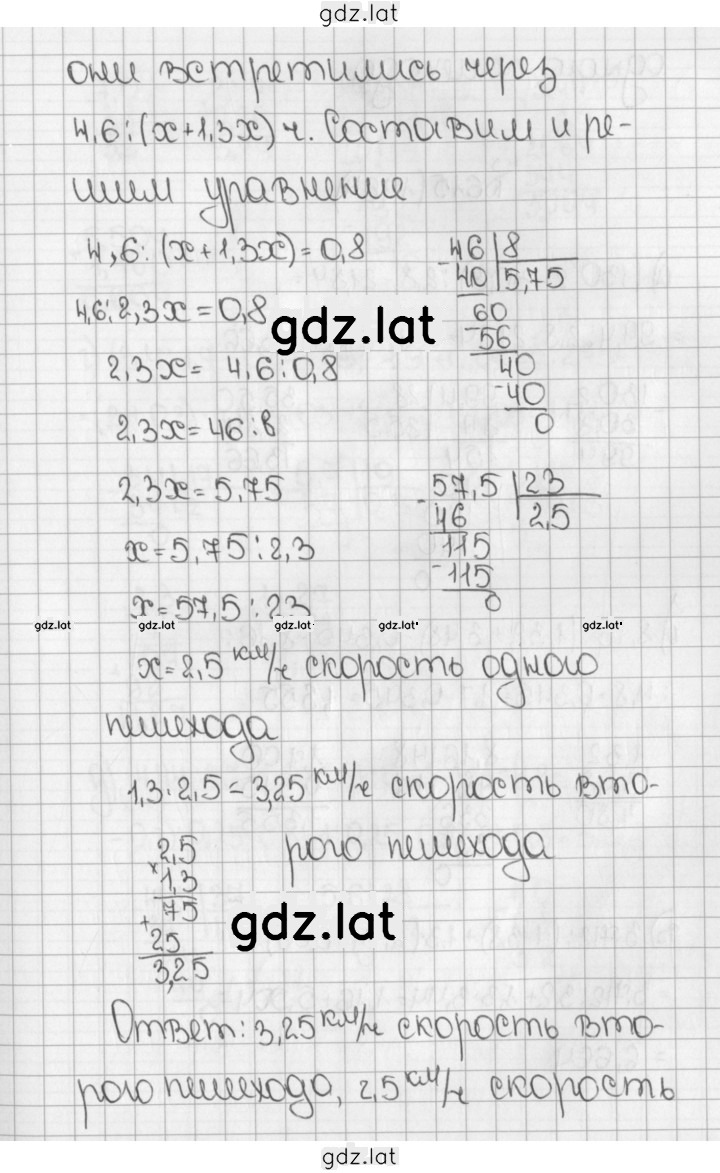 gdz.lat
они встретились через
4,6:(x+1,3x) ч. Составим и ре-
шим уравнение
4,6:(x+1,3x)=0,8
4,6:2,3x=0,8
2,3x= 4,6:0,8
2,3x=46:8
2,3x=5,75
x=5,75:2,3
x=57,5:23
46 8
- 40 5,75
60
- 56
40
- 40
0
gdz.lat
57,5 23
- 46 2,5
115
- 115
0
gdz.lat gdz.lat gdz.lat gdz.lat gdz.lat gdz.lat
x=2,5 км/ч скорость одного
пешехода
1,3·2,5=3,25 км/ч скорость вто-
рого пешехода
2,5
× 1,3
75
+ 25
3,25
gdz.lat
Ответ: 3,25 км/ч скорость вто-
рого пешехода, 2,5 км/ч скорость
gdz.lat